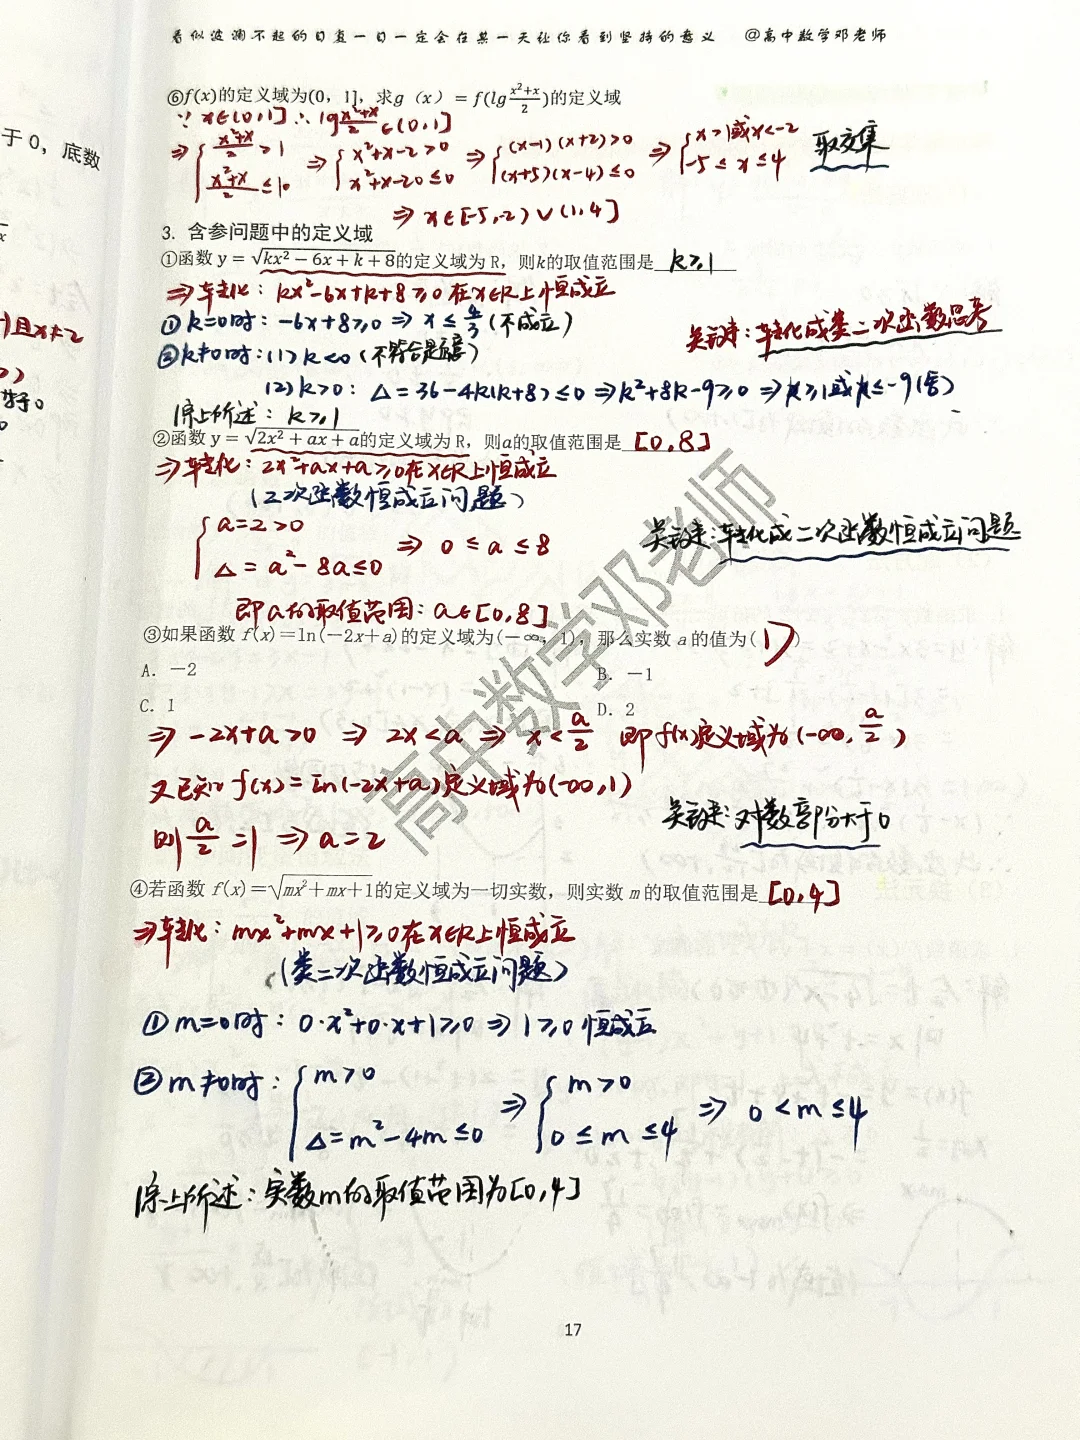 看似波澜不起的日复一日一定会在某一天让你看到坚持的意义 @高中数学邓老师
⑥f(x)的定义域为(0，1]，求g（x）＝f(lg (x²+x)/2)的定义域
∵ x∈(0,1] ∴ lg (x²+x)/2 ∈(0,1]
⇒ { (x²+x)/2 >1 ⇒ { x²+x-2>0 ⇒ { (x-1)(x+2)>0 ⇒ { x>1或x<-2 取交集
(x²+x)/2 ≤10 x²+x-20≤0 (x+5)(x-4)≤0 -5≤x≤4
⇒ x∈[-5,-2)∪(1,4]
3. 含参问题中的定义域
①函数 y＝√(kx²－6x＋k＋8)的定义域为 R，则k的取值范围是 k≥1
⇒转化：kx²-6x+k+8≥0在x∈R上恒成立
① k=0时：-6x+8≥0 ⇒ x≤4/3 (不成立)
关键：转化成类二次函数思考
② k≠0时：(1) k<0 (不符合题意)
(2) k>0：Δ=36-4k(k+8)≤0 ⇒k²+8k-9≥0 ⇒k≥1或k≤-9(舍)
综上所述：k≥1
②函数 y＝√(2x²＋ax＋a)的定义域为 R，则a的取值范围是 [0,8]
⇒转化：2x²+ax+a≥0在x∈R上恒成立
(二次函数恒成立问题)
{ a=2>0
⇒ 0≤a≤8 关键：转化成二次函数恒成立问题
Δ=a²-8a≤0
即a的取值范围：a∈[0,8]
③如果函数 f(x)＝ln(－2x＋a)的定义域为(－∞，1)，那么实数 a 的值为( D )
A．－2 B．－1
C．1 D．2
⇒ -2x+a>0 ⇒ 2x<a ⇒ x<a/2 即f(x)定义域为(-∞,a/2)
又已知f(x)=ln(-2x+a)定义域为(-∞,1)
关键：对数部分大于0
则 a/2=1 ⇒a=2
④若函数 f(x)＝√(mx²＋mx＋1)的定义域为一切实数，则实数 m 的取值范围是 [0,4]
⇒转化：mx²+mx+1≥0在x∈R上恒成立
(类二次函数恒成立问题)
① m=0时：0·x²+0·x+1≥0 ⇒ 1≥0恒成立
② m≠0时：{ m>0 ⇒ { m>0 ⇒ 0<m≤4
Δ=m²-4m≤0 0≤m≤4
综上所述：实数m的取值范围为[0,4]
17
高中数学邓老师
于 0，底数
且x≠2